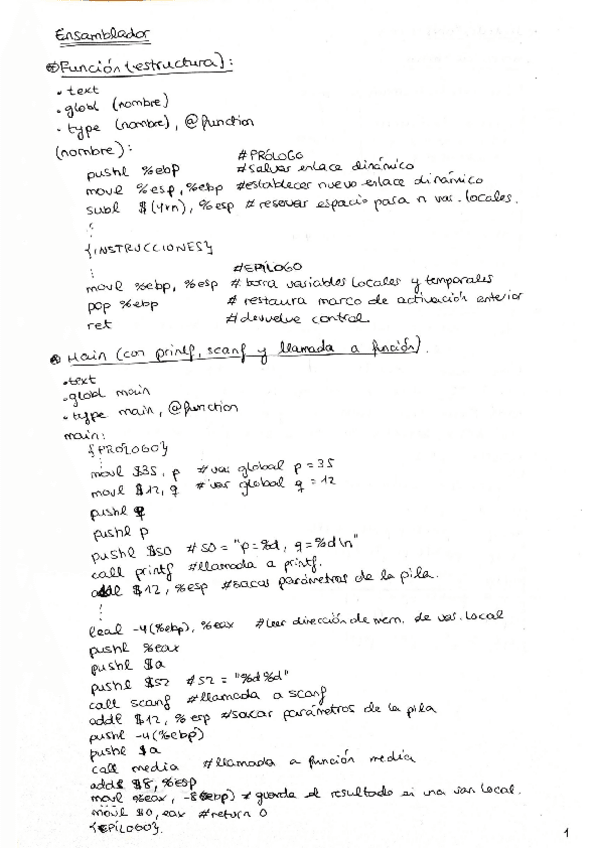 Ensamblador
Función (estructura):
.text
.globl (nombre)
.type (nombre), @function
(nombre):
#PRÓLOGO
pushl %ebp #salvar enlace dinámico
movl %esp, %ebp #establecer nuevo enlace dinámico
subl $(4*n), %esp # reservar espacio para n var. locales.
{INSTRUCCIONES}
#EPÍLOGO
movl %ebp, %esp # borra variables locales y temporales
pop %ebp # restaura marco de activación anterior
ret #devuelve control
Main (con printf, scanf y llamada a función).
.text
.globl main
.type main, @function
main:
{PRÓLOGO}
movl $35, p # var global p = 35
movl $12, q # var global q = 12
pushl q
pushl p
pushl $s0 # s0 = "p=%d, q=%d\n"
call printf #llamada a printf.
addl $12, %esp #sacar parámetros de la pila.
leal -4(%ebp), %eax #leer dirección de mem. de var. local
pushl %eax
pushl $a
pushl $s2 # s2 = "%d%d"
call scanf #llamada a scanf
addl $12, %esp #sacar parámetros de la pila
pushl -4(%ebp)
pushl $a
call media #llamada a función media
addl $8, %esp
movl %eax, -8(%ebp) # guarda el resultado en una var local.
movl $0, eax #return 0
{EPÍLOGO}.
1